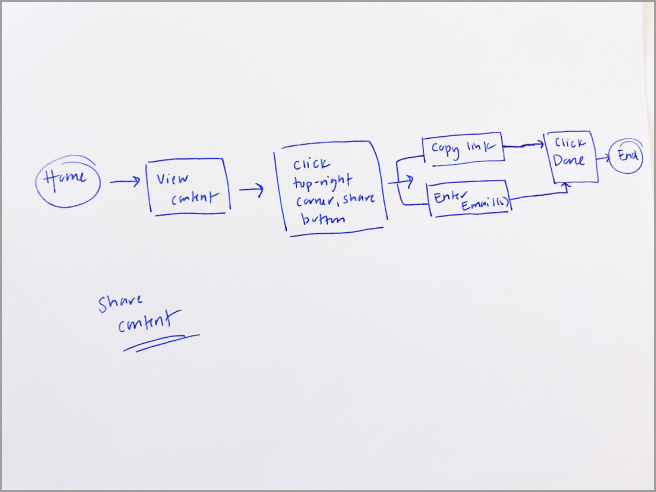 Home
View
content
Click
top-right
corner, share
button
Copy link
Enter
Email(s)
Click
Done
End
Share
content